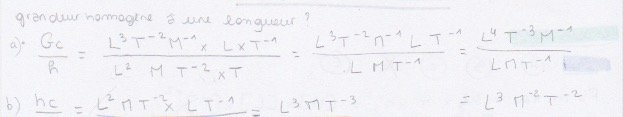 grandeur homogène à une longueur ?
a). Gc/h = L³T⁻²M⁻¹ x L x T⁻¹ / L² M T⁻² x T = L³T⁻²M⁻¹ L T⁻¹ / L M T⁻¹ = L⁴ T⁻³ M⁻¹ / L M T⁻¹
b) hc = L² M T⁻² x L T⁻¹ = L³ M T⁻³ = L³ M⁻² T⁻²